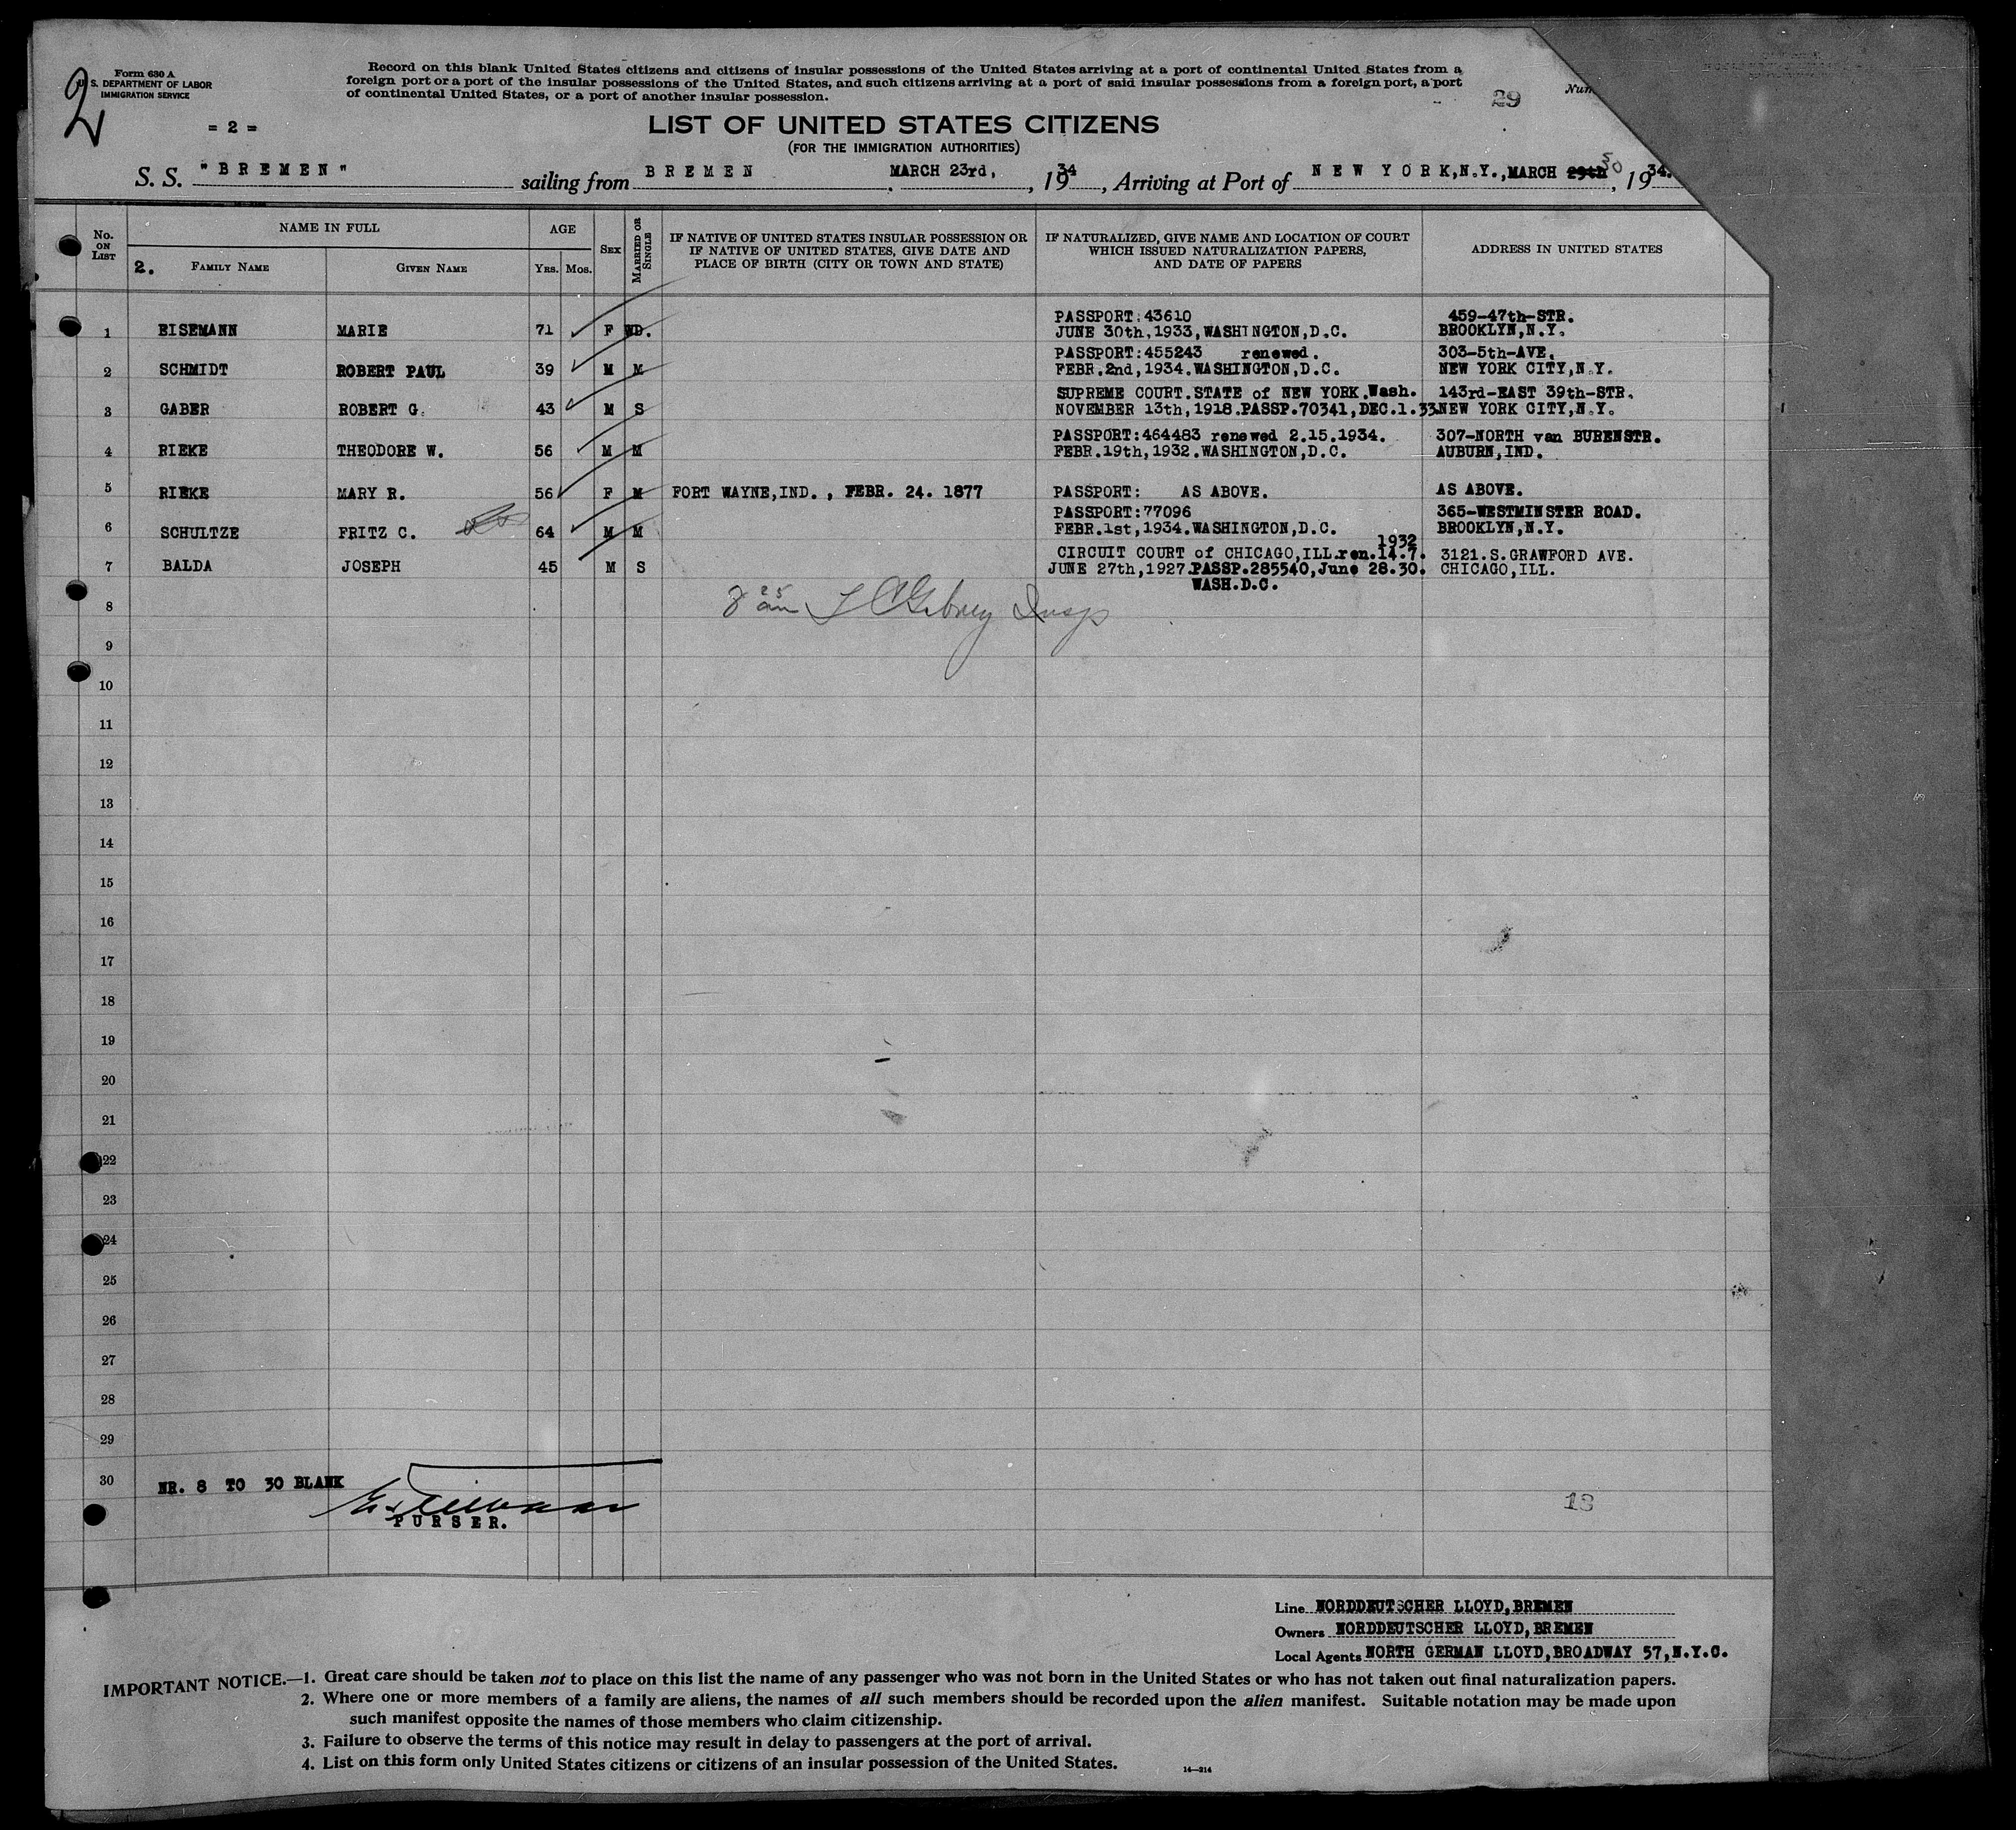 2
Form 630 A
U. S. DEPARTMENT OF LABOR
IMMIGRATION SERVICE
Record on this blank United States citizens and citizens of insular possessions of the United States arriving at a port of continental United States from a
foreign port or a port of the insular possessions of the United States, and such citizens arriving at a port of said insular possessions from a foreign port, a port
of continental United States, or a port of another insular possession.
29
= 2 =
LIST OF UNITED STATES CITIZENS
(FOR THE IMMIGRATION AUTHORITIES)
S. S. "BREMEN" sailing from BREMEN MARCH 23rd, , 1934, Arriving at Port of NEW YORK,N.Y.,MARCH 29th 30, 1934.
No. ON LIST
NAME IN FULL
AGE
SEX
MARRIED OR SINGLE
IF NATIVE OF UNITED STATES INSULAR POSSESSION OR
IF NATIVE OF UNITED STATES, GIVE DATE AND
PLACE OF BIRTH (CITY OR TOWN AND STATE)
IF NATURALIZED, GIVE NAME AND LOCATION OF COURT
WHICH ISSUED NATURALIZATION PAPERS,
AND DATE OF PAPERS
ADDRESS IN UNITED STATES
2. FAMILY NAME GIVEN NAME YRS. MOS.
PASSPORT:43610 459-47th-STR.
1 EISEMANN MARIE 71 F WD. JUNE 30th,1933,WASHINGTON,D.C. BROOKLYN,N.Y.
PASSPORT:455243 renewed. 303-5th-AVE.
2 SCHMIDT ROBERT PAUL 39 M M FEBR.2nd,1934.WASHINGTON,D.C. NEW YORK CITY,N.Y.
SUPREME COURT.STATE of NEW YORK.Wash. 143rd-EAST 39th-STR.
3 GABER ROBERT G. 43 M S NOVEMBER 13th,1918.PASSP.70341,DEC.1.33. NEW YORK CITY,N.Y.
PASSPORT:464483 renewed 2.15.1934. 307-NORTH van BURENSTR.
4 RIEKE THEODORE W. 56 M M FEBR.19th,1932.WASHINGTON,D.C. AUBURN,IND.
5 RIEKE MARY R. 56 F M FORT WAYNE,IND., FEBR. 24. 1877 PASSPORT: AS ABOVE. AS ABOVE.
PASSPORT:77096 365-WESTMINSTER ROAD.
6 SCHULTZE FRITZ C. 64 M M FEBR.1st,1934.WASHINGTON,D.C. BROOKLYN,N.Y.
1932
CIRCUIT COURT of CHICAGO,ILL.ren.14.7. 3121.S.GRAWFORD AVE.
7 BALDA JOSEPH 45 M S JUNE 27th,1927.PASSP.285540,June 28.30. CHICAGO,ILL.
WASH.D.C.
8 8 25 am Insp
9
10
11
12
13
14
15
16
17
18
19
20
21
22
23
24
25
26
27
28
29
30 NR. 8 TO 30 BLANK
PURSER.
13
Line NORDDEUTSCHER LLOYD,BREMEN
Owners NORDDEUTSCHER LLOYD,BREMEN
Local Agents NORTH GERMAN LLOYD,BROADWAY 57,N.Y.C.
IMPORTANT NOTICE.—1. Great care should be taken not to place on this list the name of any passenger who was not born in the United States or who has not taken out final naturalization papers.
2. Where one or more members of a family are aliens, the names of all such members should be recorded upon the alien manifest. Suitable notation may be made upon
such manifest opposite the names of those members who claim citizenship.
3. Failure to observe the terms of this notice may result in delay to passengers at the port of arrival.
4. List on this form only United States citizens or citizens of an insular possession of the United States.
14—214